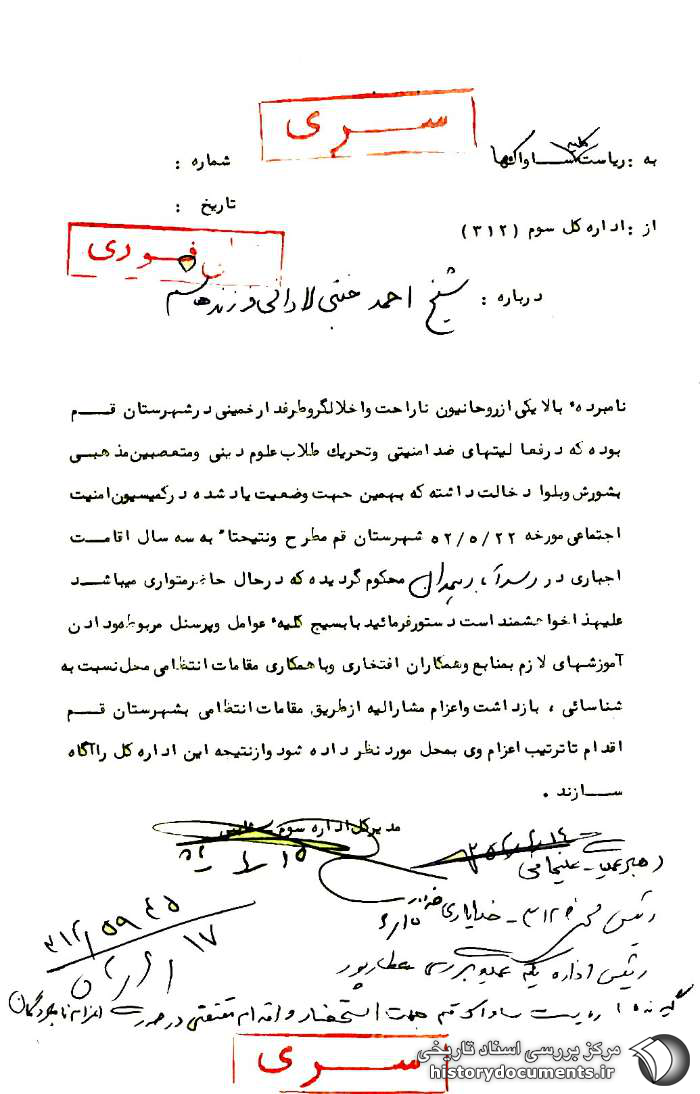 سری
به : ریاست کلیه ساواکها
شماره :
تاریخ :
از : اداره کل سوم (۳۱۲)
فوری
درباره : شیخ احمد جنتی لادانی فرزند هاشم
نامبرده بالا یکی از روحانیون ناراحت واخلالگر وطرفدار خمینی در شهرستان قم
بوده که در فعالیتهای ضد امنیتی وتحریك طلاب علوم دینی ومتعصبین مذهبی
بشورش وبلوا دخالت داشته که بهمین جهت وضعیت یاد شده در کمیسیون امنیت
اجتماعی مورخه ۵۲/۵/۲۲ شهرستان قم مطرح ونتیجتاً به سه سال اقامت
اجباری در اسدآباد همدان محکوم گردیده که در حال حاضر متواری میباشد
علیهذا خواهشمند است دستور فرمائید با بسیج کلیه عوامل وپرسنل مربوطه ودادن
آموزشهای لازم بمنابع وهمکاران افتخاری وبا همکاری مقامات انتظامی محل نسبت به
شناسائی ، بازداشت واعزام مشارالیه از طریق مقامات انتظامی بشهرستان قم
اقدام تا ترتیب اعزام وی بمحل مورد نظر داده شود واز نتیجه این اداره کل را آگاه
سازند .
مدیر کل اداره سوم
رهبر عملیات -
رئیس بخش ۳۱۲ - خدایاری
رئیس اداره یکم عملیات و بررسی عطارپور
۳۱۲/۵۹۴۵
۱۷
گیرنده : ریاست ساواک قم جهت استحضار و اقدام مقتضی در مورد اعزام نامبرده
سری
مرکز بررسی اسناد تاریخی
historydocuments.ir